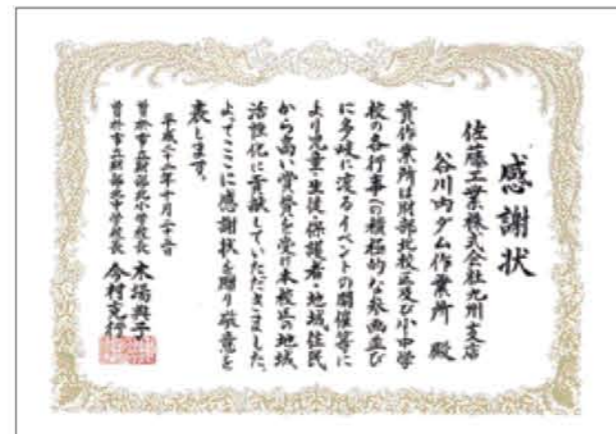 感謝状
佐藤工業株式会社九州支店
谷川内ダム作業所 殿
貴作業所は財部北校区及び小中学
校の各行事への積極的な参画並び
に多岐に渡るイベントの開催等に
より児童・生徒・保護者・地域住民
から高い賞賛を受け本校区の地域
活性化に貢献していただきました。
よってここに感謝状を贈り敬意を
表します。
平成二十年十月二十五日
曽於市立財部北小学校長 木場典子
曽於市立財部北中学校長 今村克行